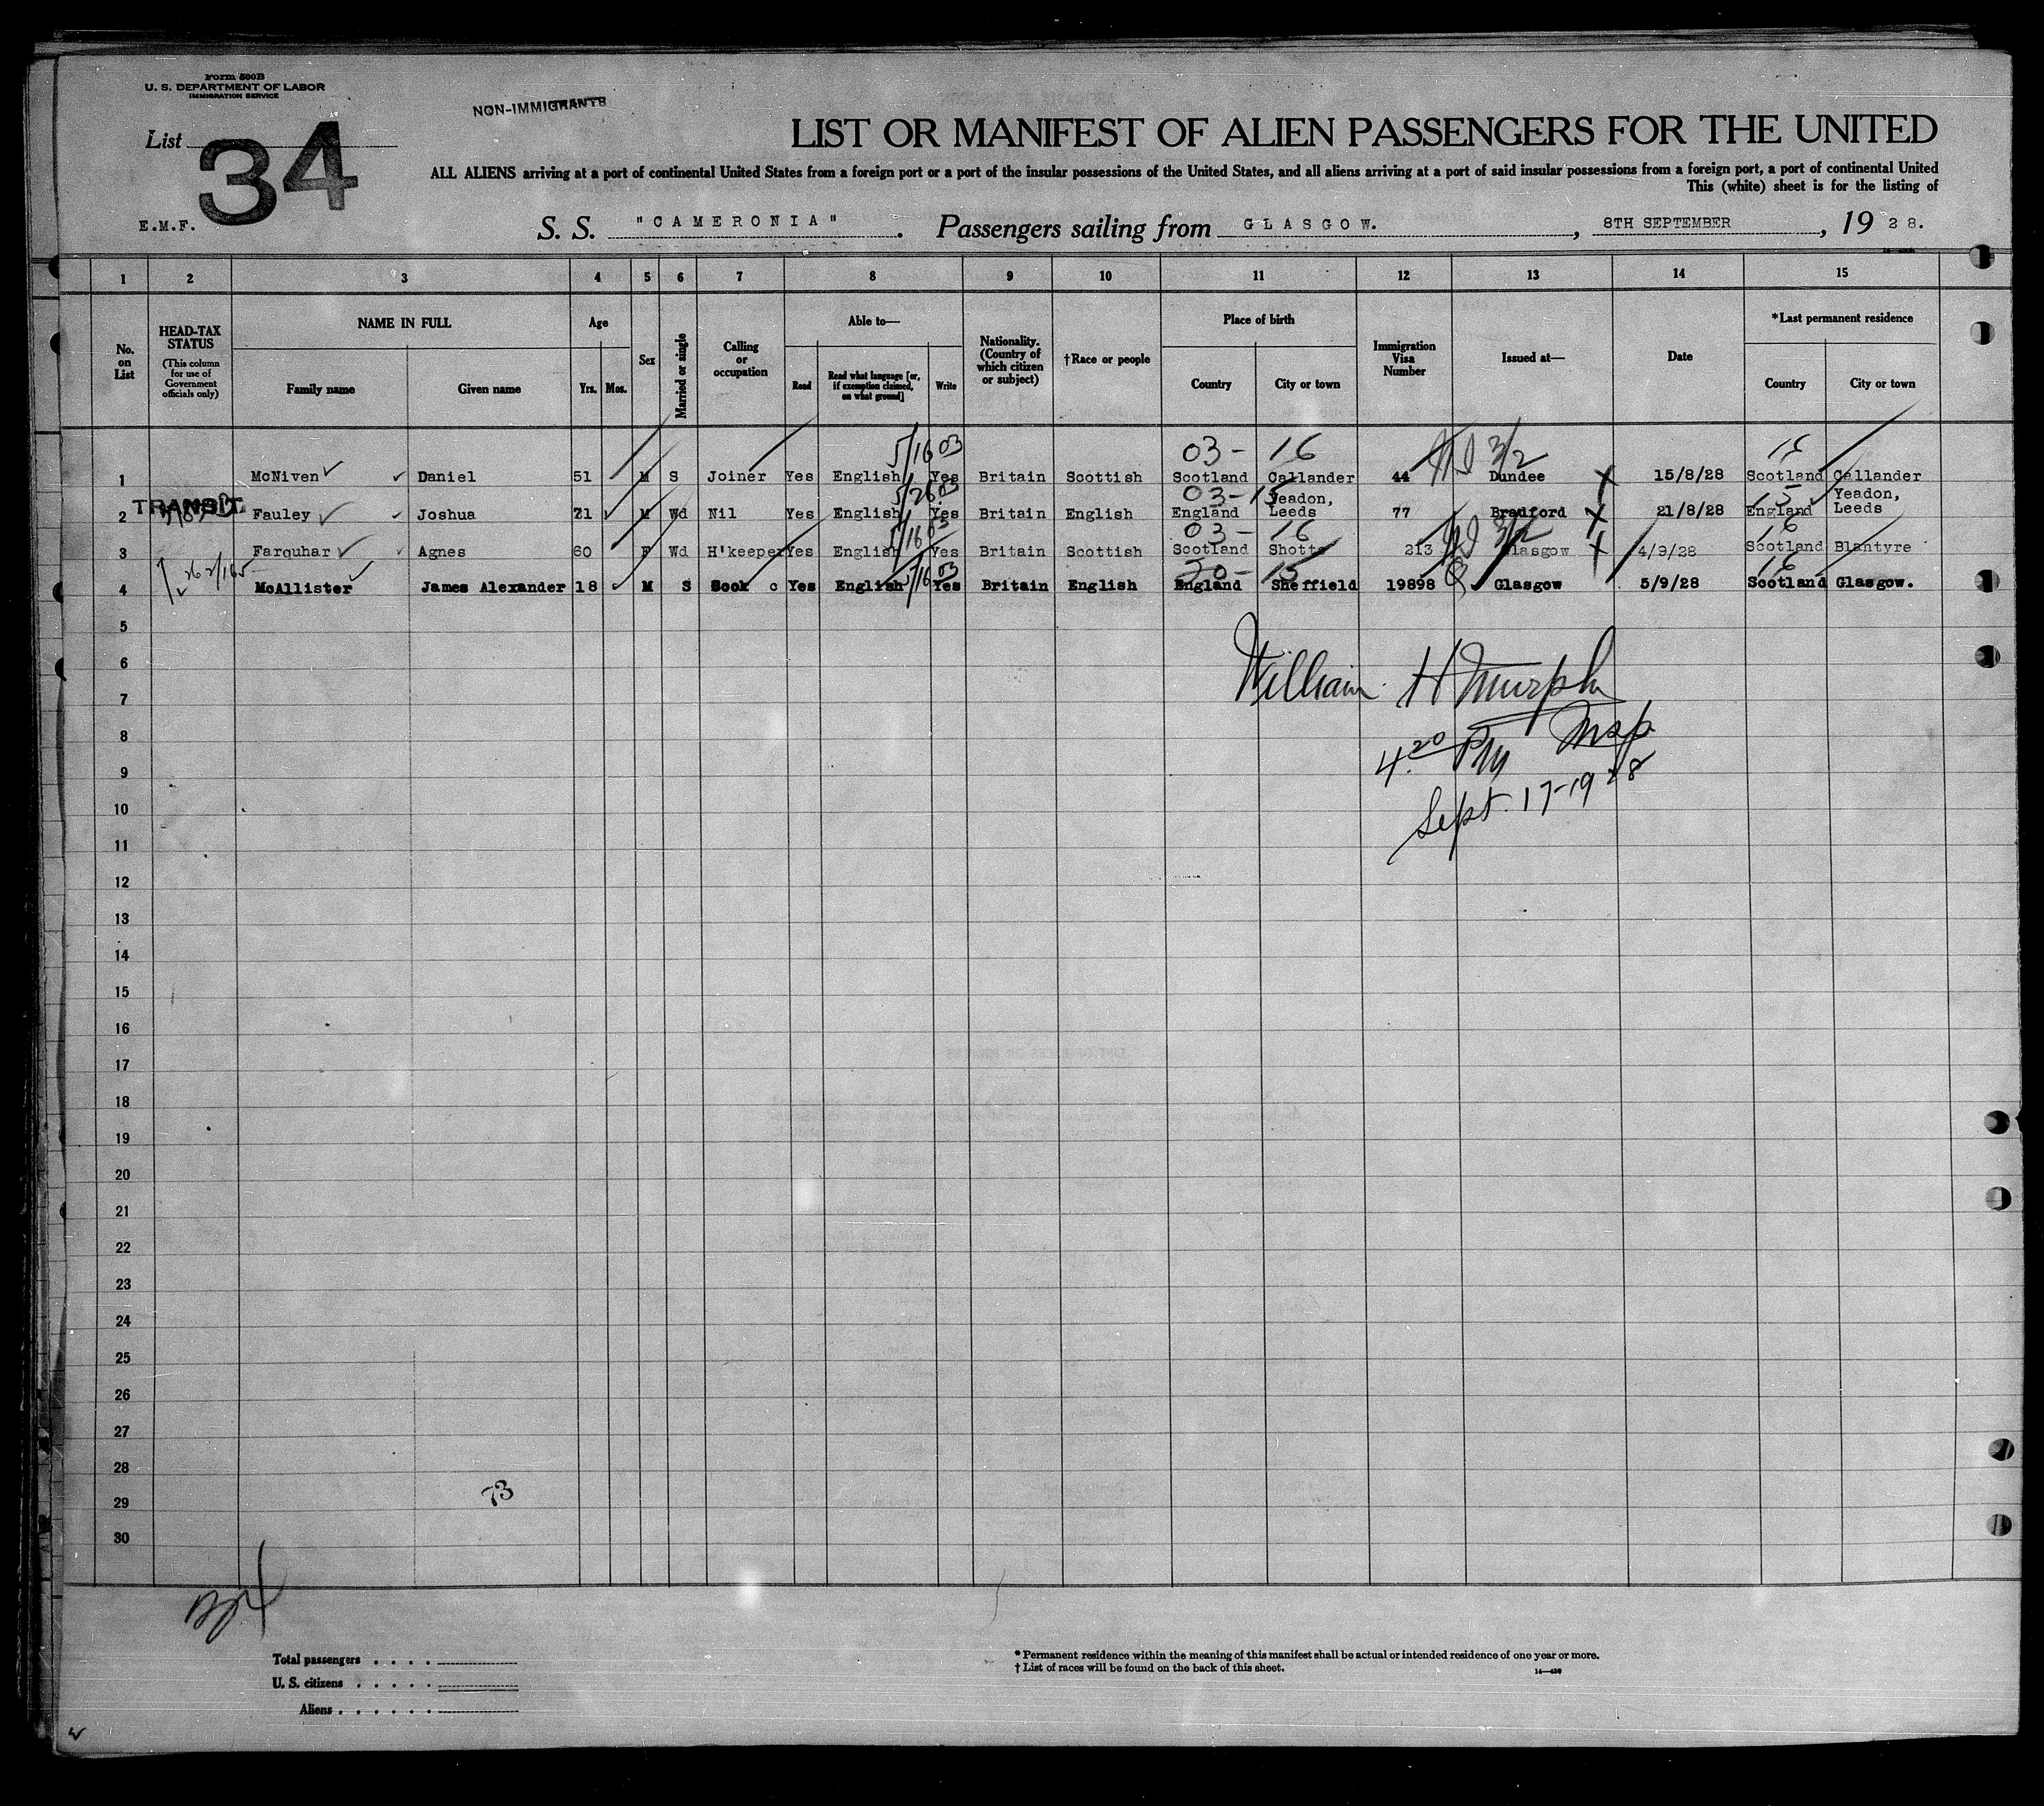 Form 500B
U. S. DEPARTMENT OF LABOR
IMMIGRATION SERVICE
NON-IMMIGRANTS
List 34
LIST OR MANIFEST OF ALIEN PASSENGERS FOR THE UNITED
ALL ALIENS arriving at a port of continental United States from a foreign port or a port of the insular possessions of the United States, and all aliens arriving at a port of said insular possessions from a foreign port, a port of continental United
This (white) sheet is for the listing of
E.M.F.
S. S. "CAMERONIA". Passengers sailing from GLASGOW., 8TH SEPTEMBER, 1928.
1 2 3 4 5 6 7 8 9 10 11 12 13 14 15
No. on List
HEAD-TAX STATUS
(This column for use of Government officials only)
NAME IN FULL
Family name Given name
Age
Yrs. Mos.
Sex
Married or single
Calling or occupation
Able to—
Read
Read what language [or, if exemption claimed, on what ground]
Write
Nationality. (Country of which citizen or subject)
†Race or people
Place of birth
Country City or town
Immigration Visa Number
Issued at—
Date
*Last permanent residence
Country City or town
5/16 03 03- 16 3/2 16
1 McNiven Daniel 51 M S Joiner Yes English Yes Britain Scottish Scotland Callander 44 Dundee 15/8/28 Scotland Callander
TRANSIT.
5/26 03 03- 15 15
2 Fauley Joshua 71 M Wd Nil Yes English Yes Britain English England Yeadon, Leeds 77 Bradford 21/8/28 England Yeadon, Leeds
5/16 03 03- 16 3/2 16
3 Farquhar Agnes 60 F Wd H'keeper Yes English Yes Britain Scottish Scotland Shotts 213 Glasgow 4/9/28 Scotland Blantyre
5/16 03 20- 15 16
4 McAllister James Alexander 18 M S Cook c Yes English Yes Britain English England Sheffield 19898 Glasgow 5/9/28 Scotland Glasgow.
5
6
William H Murphy
7
8
4.20 PM Insp
9
Sept. 17-1928
10
11
12
13
14
15
16
17
18
19
20
21
22
23
24
25
26
27
28
29
73
30
Total passengers
U. S. citizens
Aliens
* Permanent residence within the meaning of this manifest shall be actual or intended residence of one year or more.
† List of races will be found on the back of this sheet.